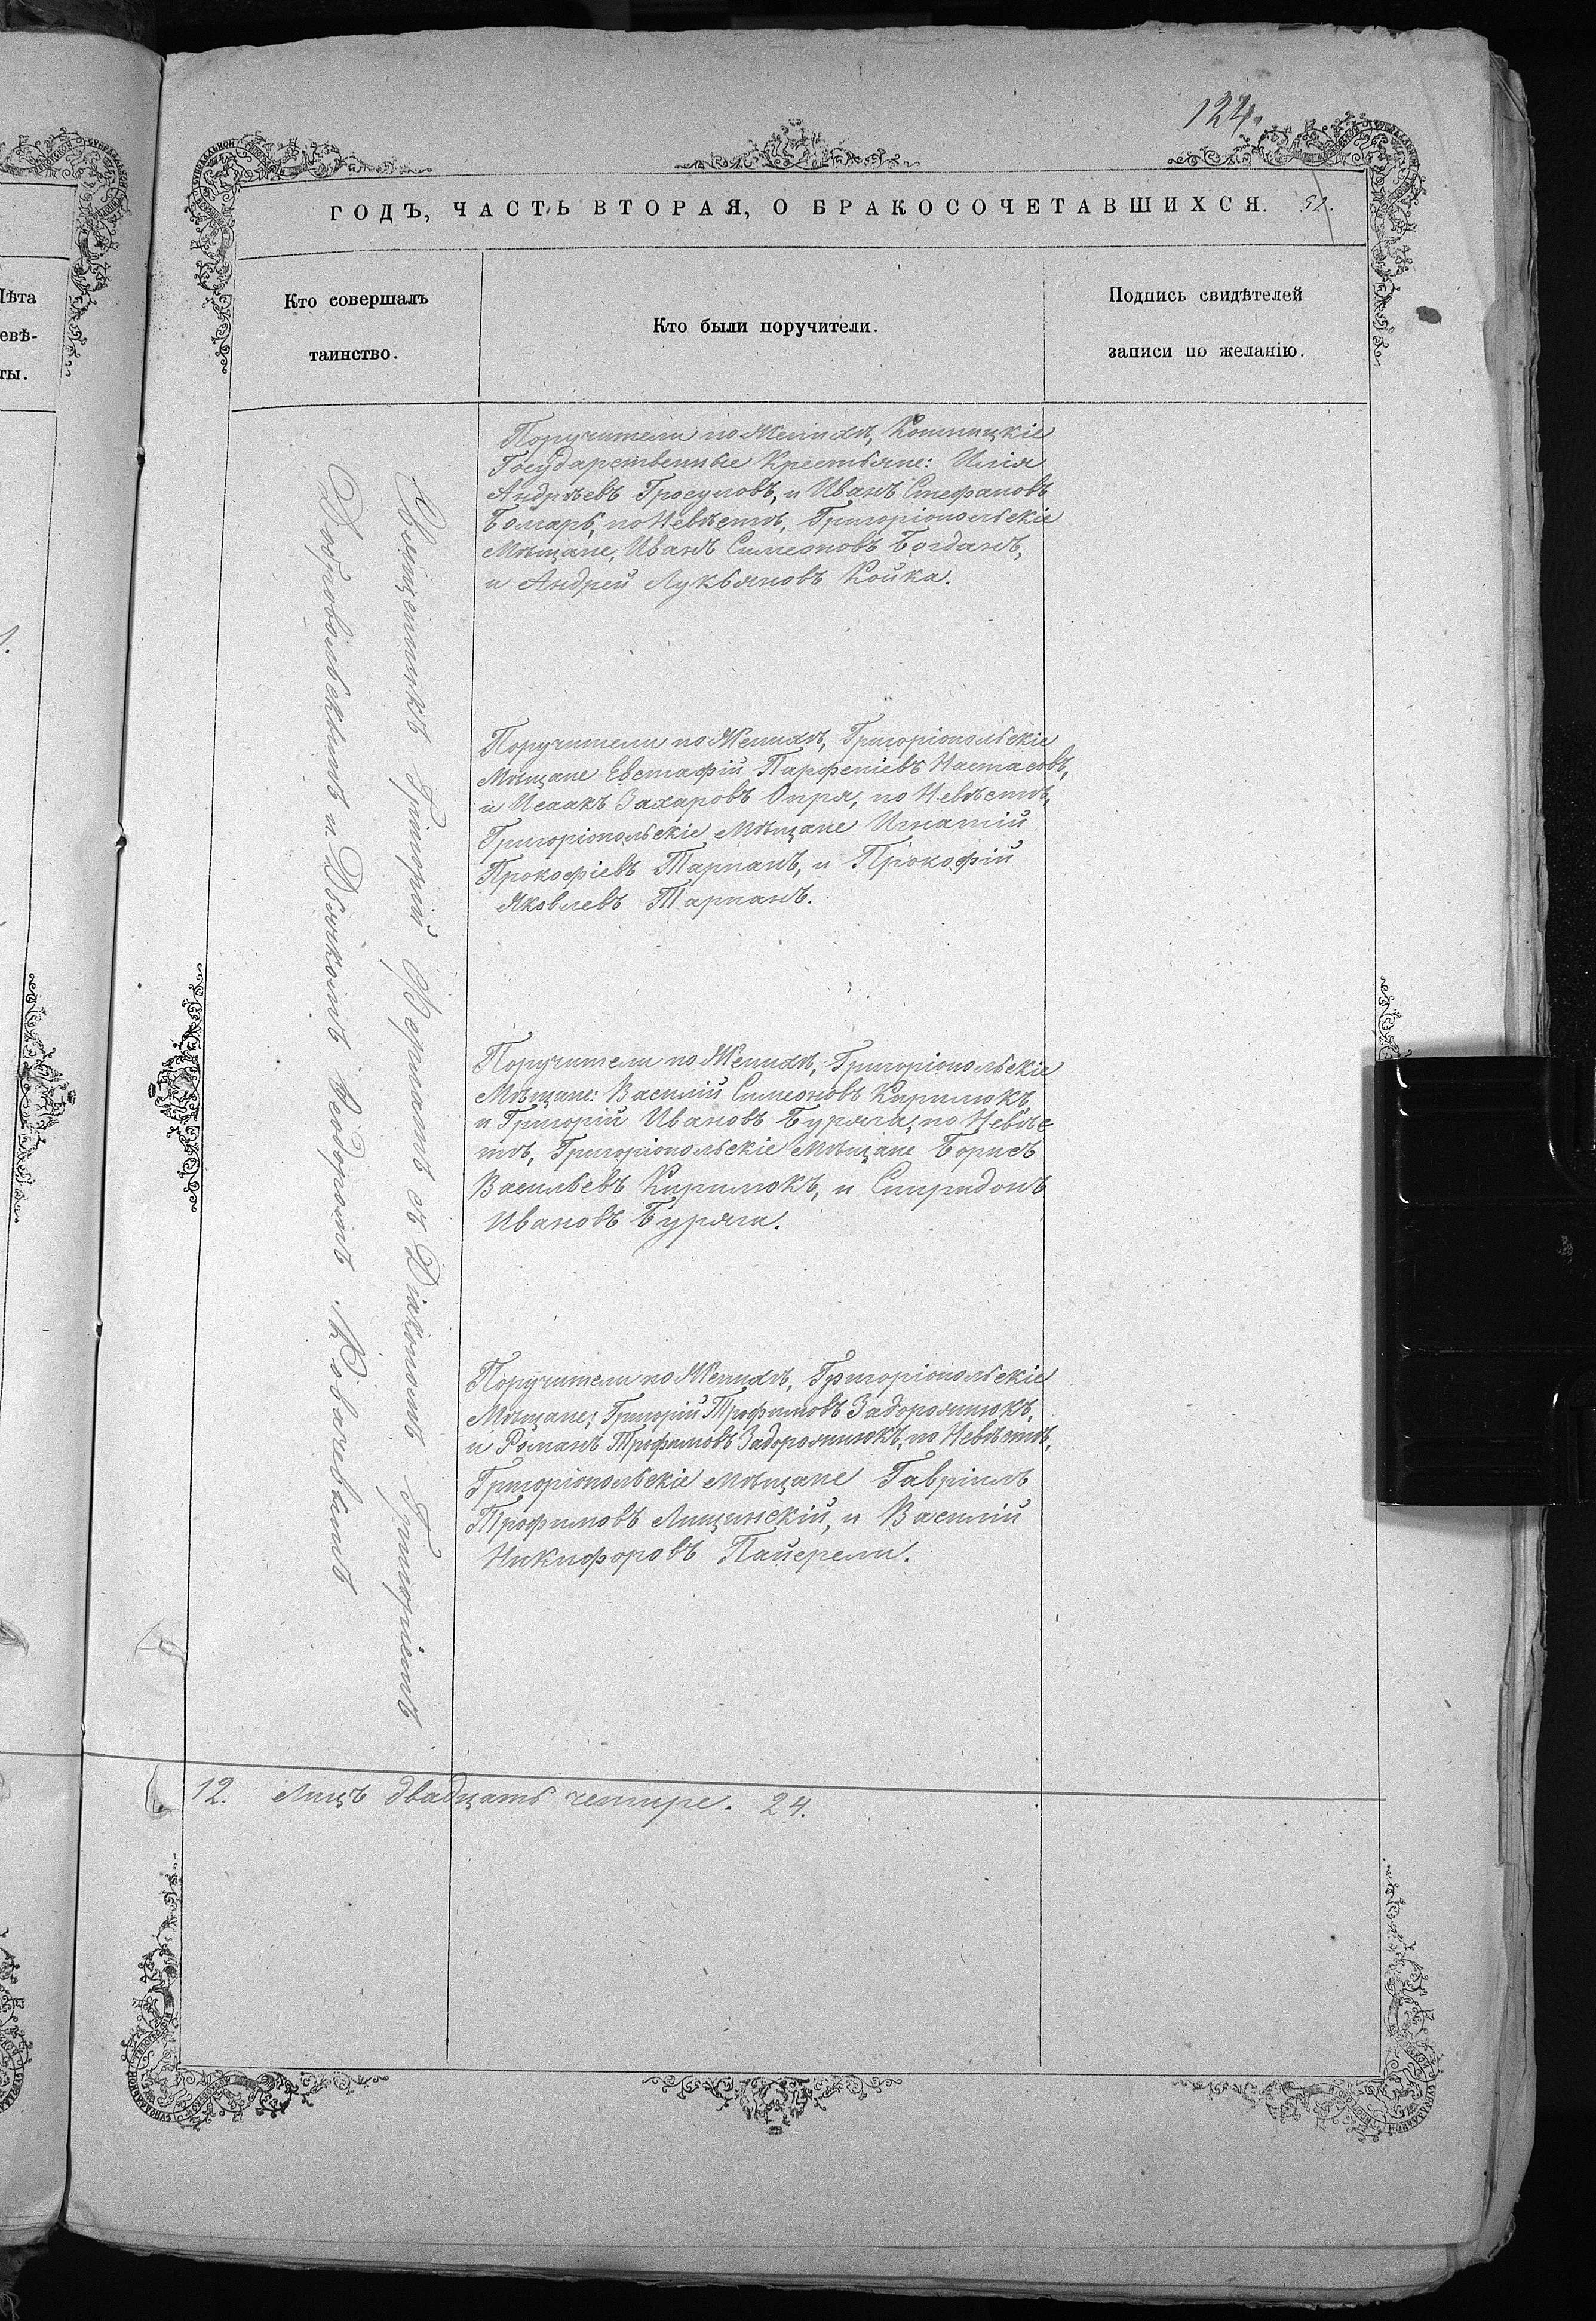 124.
ГОДЪ, ЧАСТЬ ВТОРАЯ, О БРАКОСОЧЕТАВШИХСЯ. 51.
Лѣта
евѣ-
ты.
Кто совершалъ
таинство.
Кто были поручители.
Подпись свидѣтелей
записи по желанію.
Священникъ Григорій Церматъ съ Діакономъ Григоріемъ
Добровольскимъ и Дьячкомъ Ѳеодоромъ Ковачевымъ
Поручители по Женихѣ, Кошницкіе
Государственные Крестьяне: Илія
Андрѣевъ Гросуловъ, и Иванъ Стефановъ
Ботаръ, по Невѣстѣ, Григоріопольскіе
Мѣщане, Иванъ Симеоновъ Богданъ,
и Андрей Лукьяновъ Койка.
Поручители по Женихѣ, Григоріопольскіе
Мѣщане Евстафій Парфеніевъ Настасовъ,
и Исаакъ Захаровъ Опря, по Невѣстѣ,
Григоріопольскіе Мѣщане Игнатій
Прокофіевъ Тарпанъ, и Прокофій
Яковлевъ Тарпанъ.
Поручители по Женихѣ, Григоріопольскіе
Мѣщане: Василій Симеоновъ Кирилюкъ
и Григорій Ивановъ Буряга, по Невѣс
тѣ, Григоріопольскіе Мѣщане Борисъ
Васильевъ Кирилюкъ, и Спиридонъ
Ивановъ Буряга.
Поручители по Женихѣ, Григоріопольскіе
Мѣщане; Григорій Трофимовъ Задорожнюкъ,
и Романъ Трофимовъ Задорожнюкъ, по Невѣстѣ,
Григоріопольскіе мѣщане Гавріилъ
Трофимовъ Лищинскій, и Василій
Никифоровъ Пайерели.
12. Лицъ двадцать четире. 24.